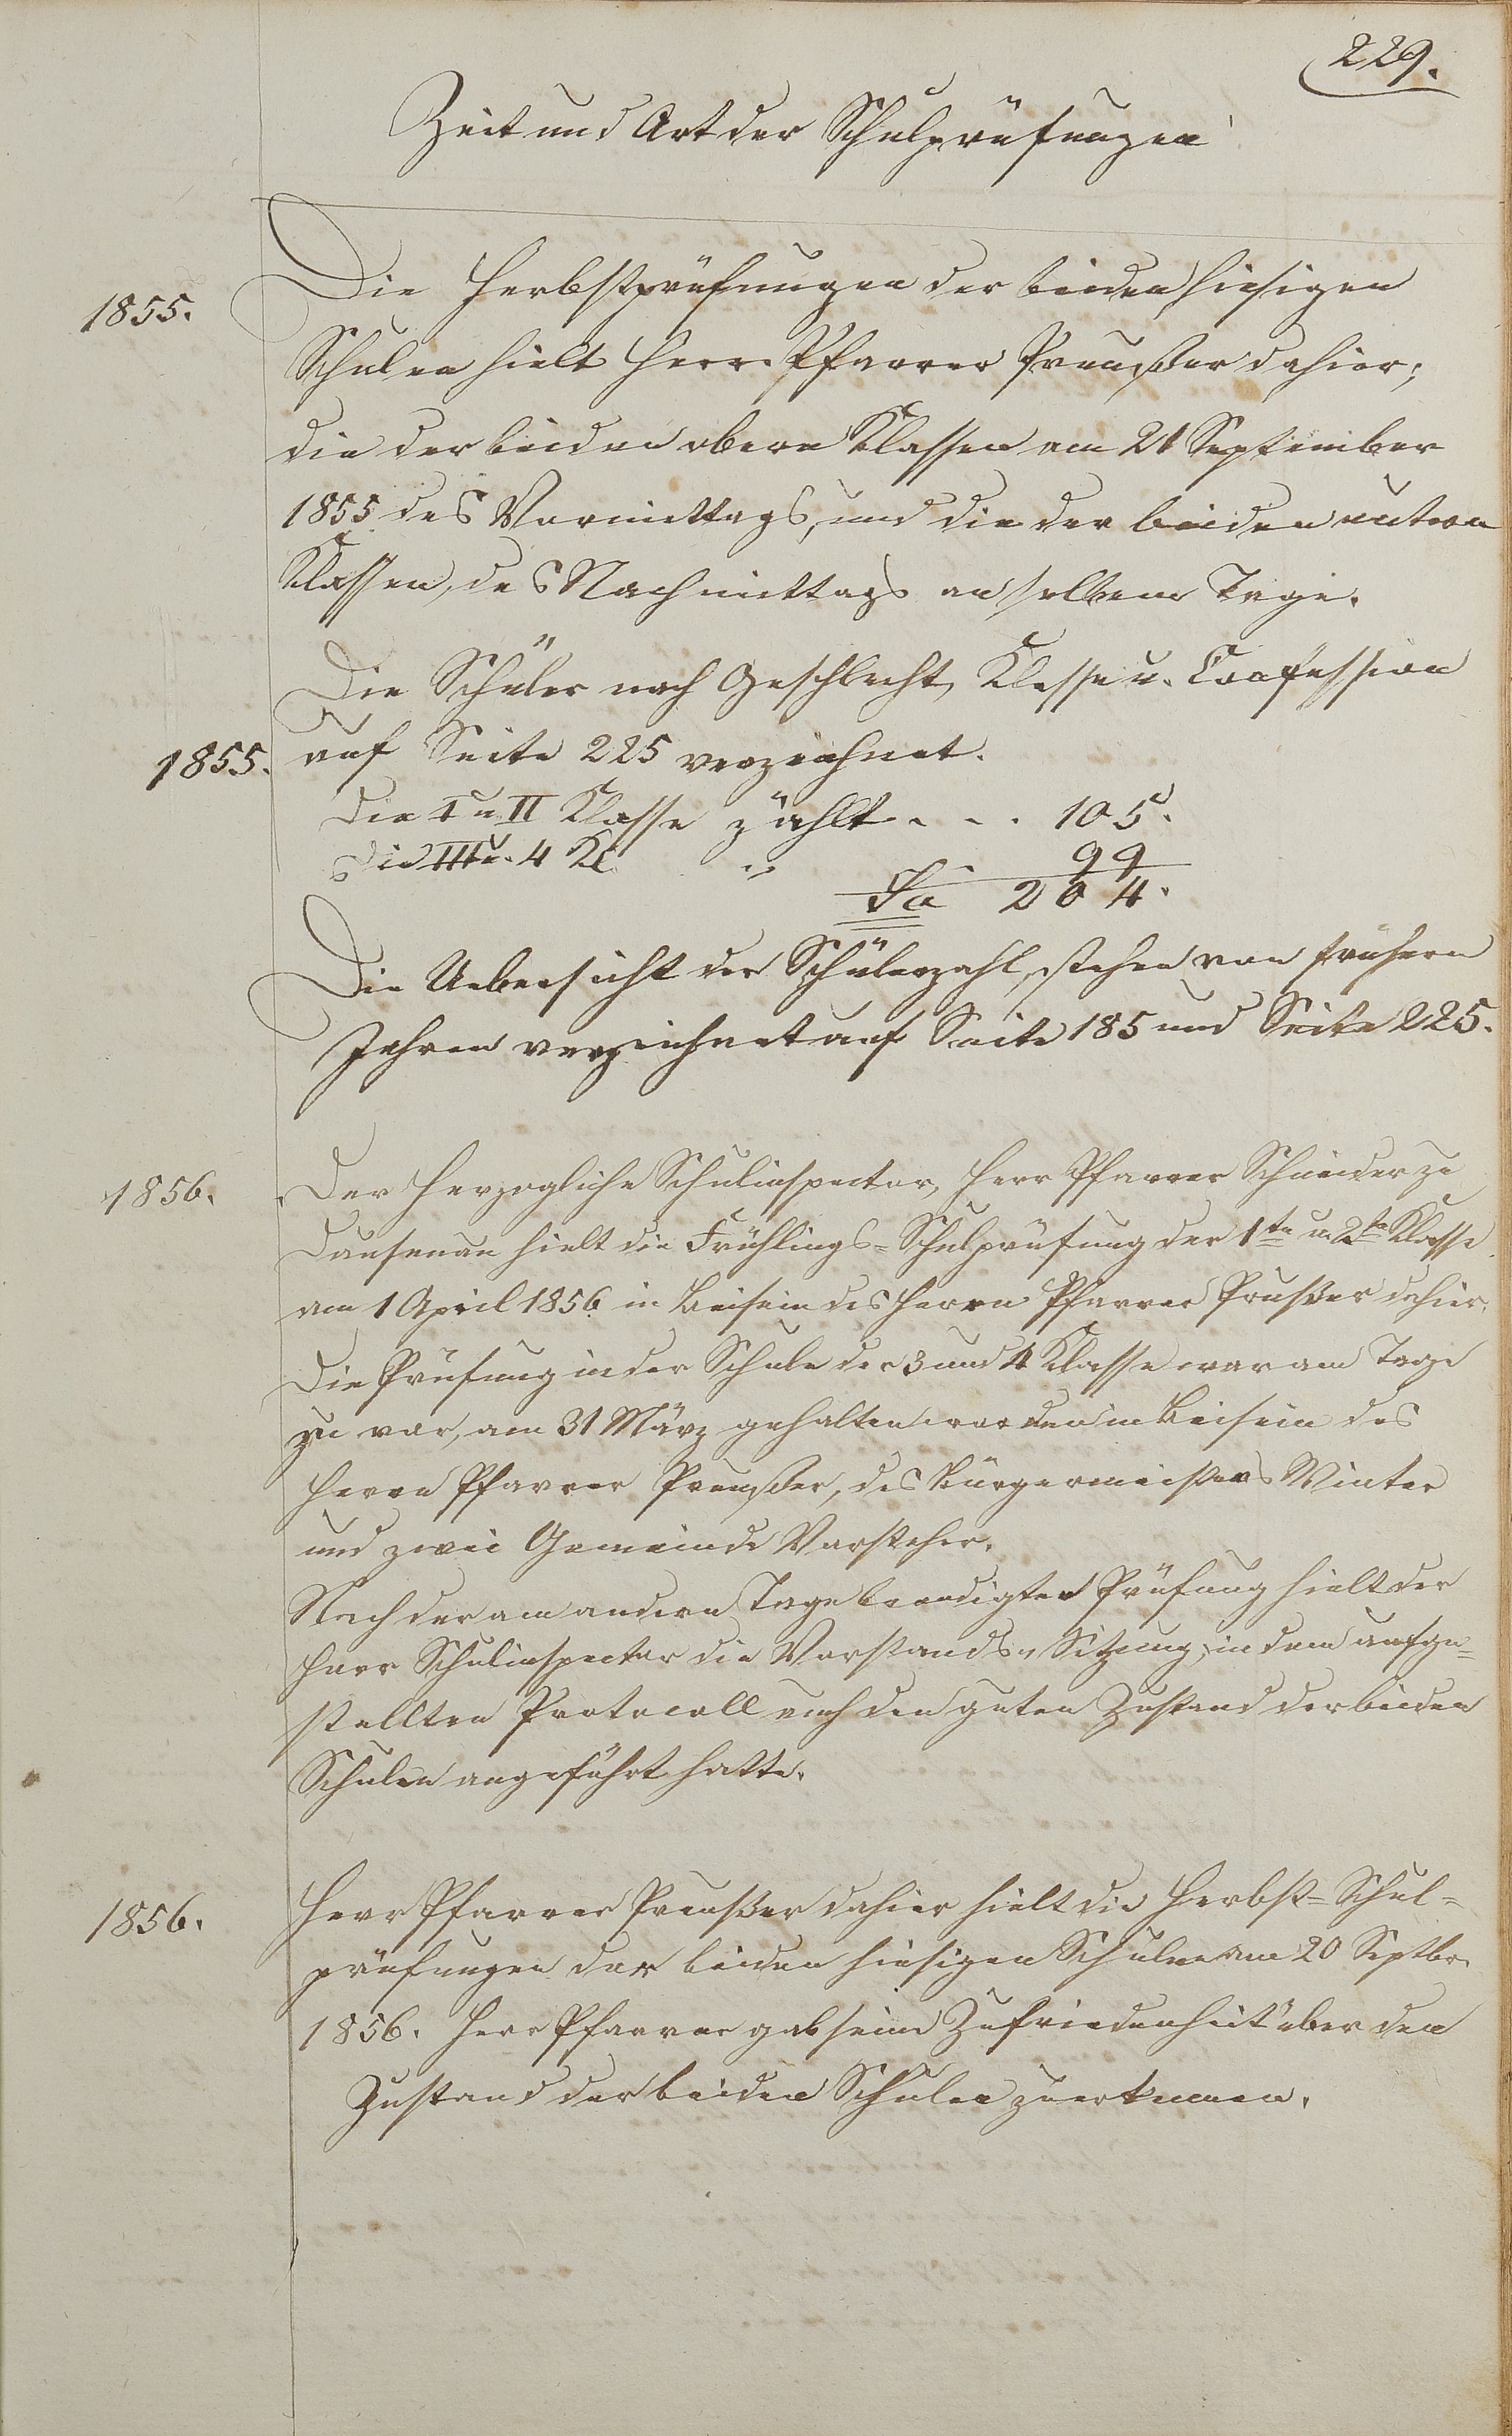 229.
Zeit und Art der Schulprüfungen
1855.
Die Herbstprüfungen der beiden hiesigen
Schulen hielt Herr Pfarrer Preußer dahier;
die der beiden obern Klassen am 21 September
1855 des Vormittags, und die der beiden untern
Klassen, des Nachmittags an selbem Tage.
Die Schüler nach Geschlecht, Klasse u. Confession
1855.
auf Seite 225 verzeichnet.
Die I u II Klasse zählt . . . 105.
Die III u. 4 Kl. " 99
Sa 204.
Die Uebersicht der Schülerzahl, stehen von frühern
Jahren verzeichnet auf Seite 185 und Seite 225.
1856.
Der Herzogliche Schulinspector, Herr Pfarrer Schneider zu
Dausenau hielt die Frühlings-Schulprüfung der 1te u. 2te Klasse
am 1 April 1856 in Beisein des Herrn Pfarrer Preußer dahier.
Die Prüfung in der Schule der 3 und 4 Klasse war am Tage
zu vor, am 31 März gehalten worden in Beisein des
Herrn Pfarrer Preußer, des Bürgermeisters Winter
und zwei Gemeinde Vorsteher.
Nach der am andern Tage beendigten Prüfung hielt der
Herr Schulinspector die Vorstands-Sitzung, in dem aufge-
stellten Protocoll auch den guten Zustand der beiden
Schulen angeführt hatte.
1856.
Herr Pfarrer Preußer dahier hielt die Herbst-Schul-
prüfungen der beiden hiesigen Schulen am 20 Septbr.
1856. Herr Pfarrer gab seine Zufriedenheit über den
Zustand der beiden Schulen zu erkennen.